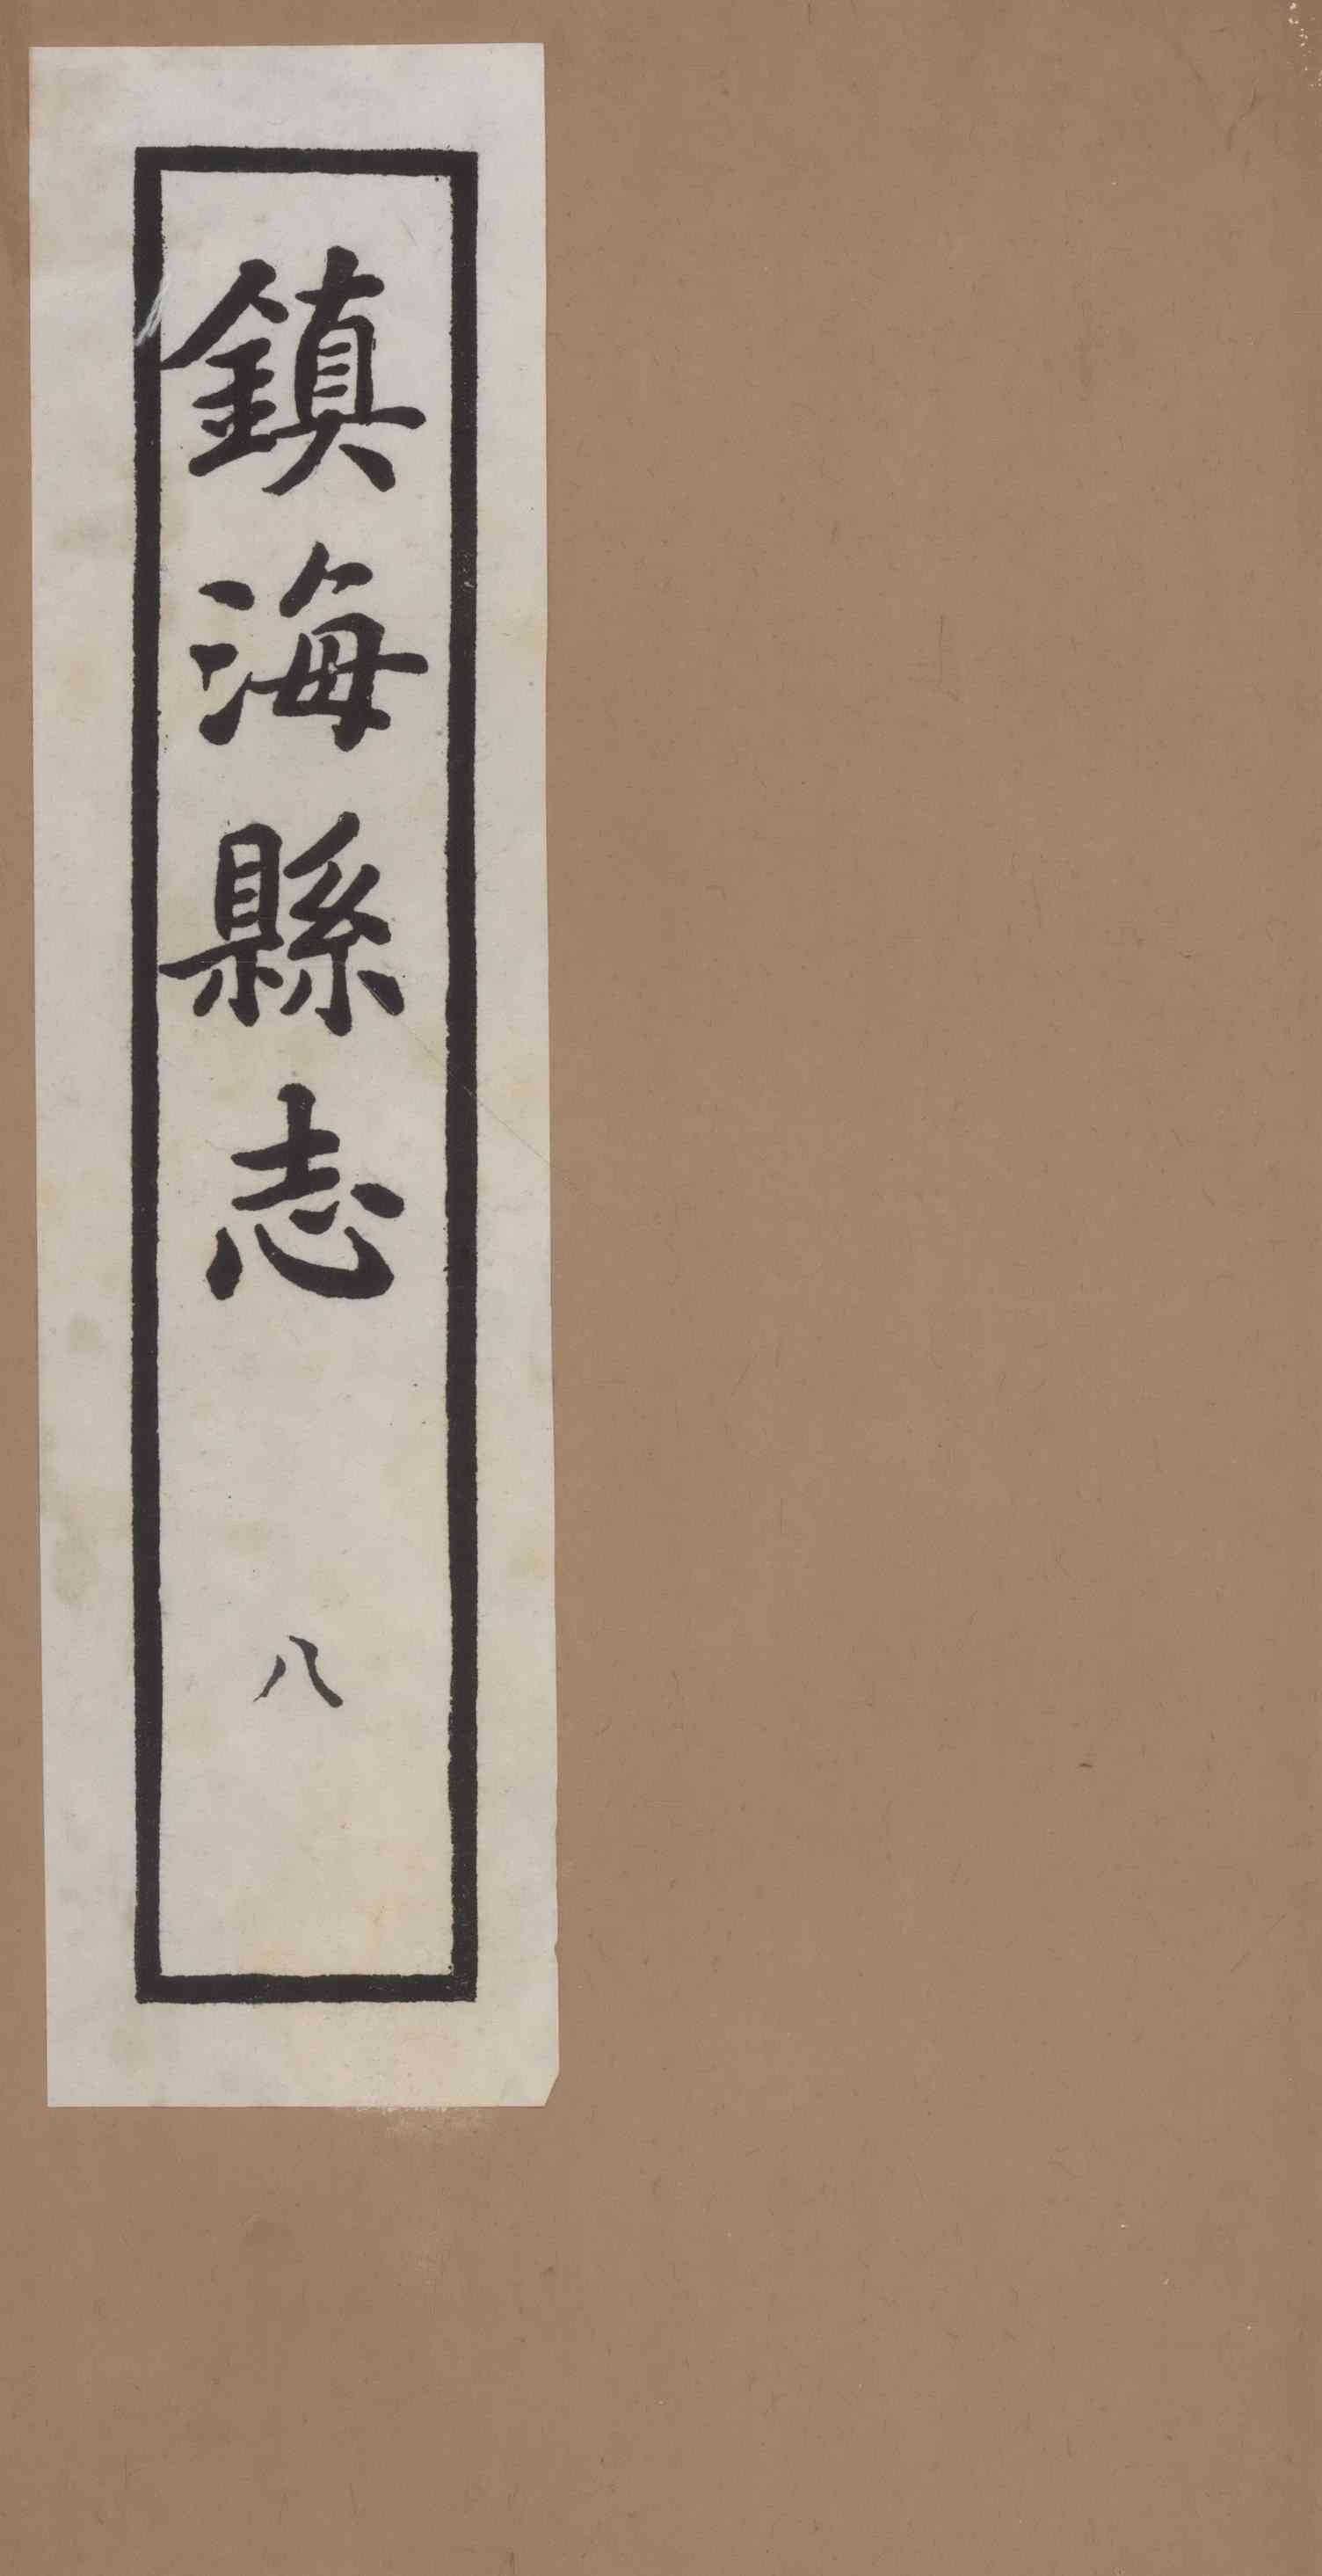 鎮海縣志
八